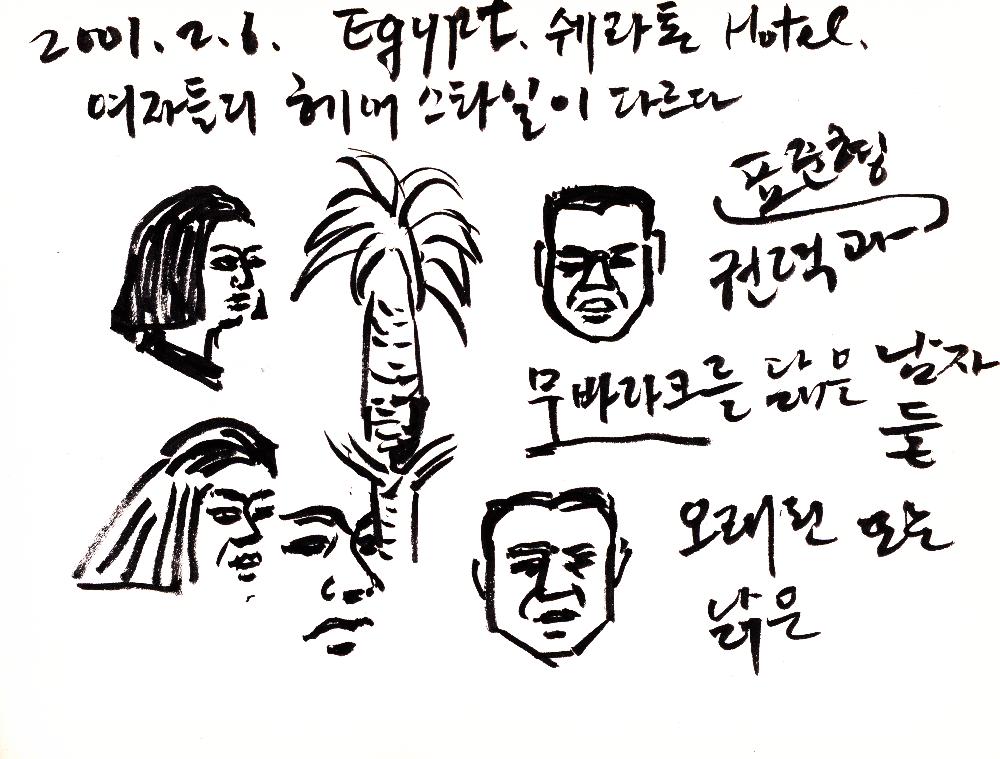 2001.2.6. Egypt. 쉐라톤 Hotel.
여자들의 헤어 스타일이 다르다
표준형
권력과
무바라크를 닮은 남자
들
오래된 또는
낡은